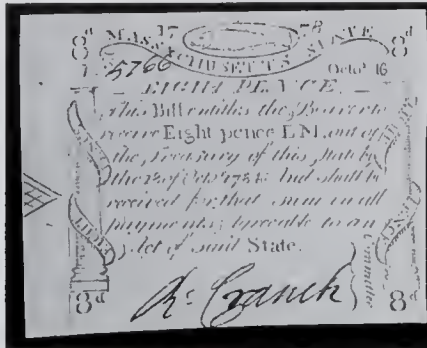 8d 17 78 8d
MASSACHUSETTS STATE
5766 Octor 16
EIGHT PENCE.
This Bill entitles the Bearer to
receive Eight pence LM. out of
the Treasury of this State by
the 18 of Octr 1784. And shall be
received for that sum in all
payments, agreeable to an
Act of said State.
Committee
Rd Cranch
8d 8d